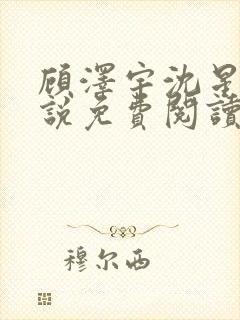 顾澤宇沈星
說免費閱讀
穆尔西